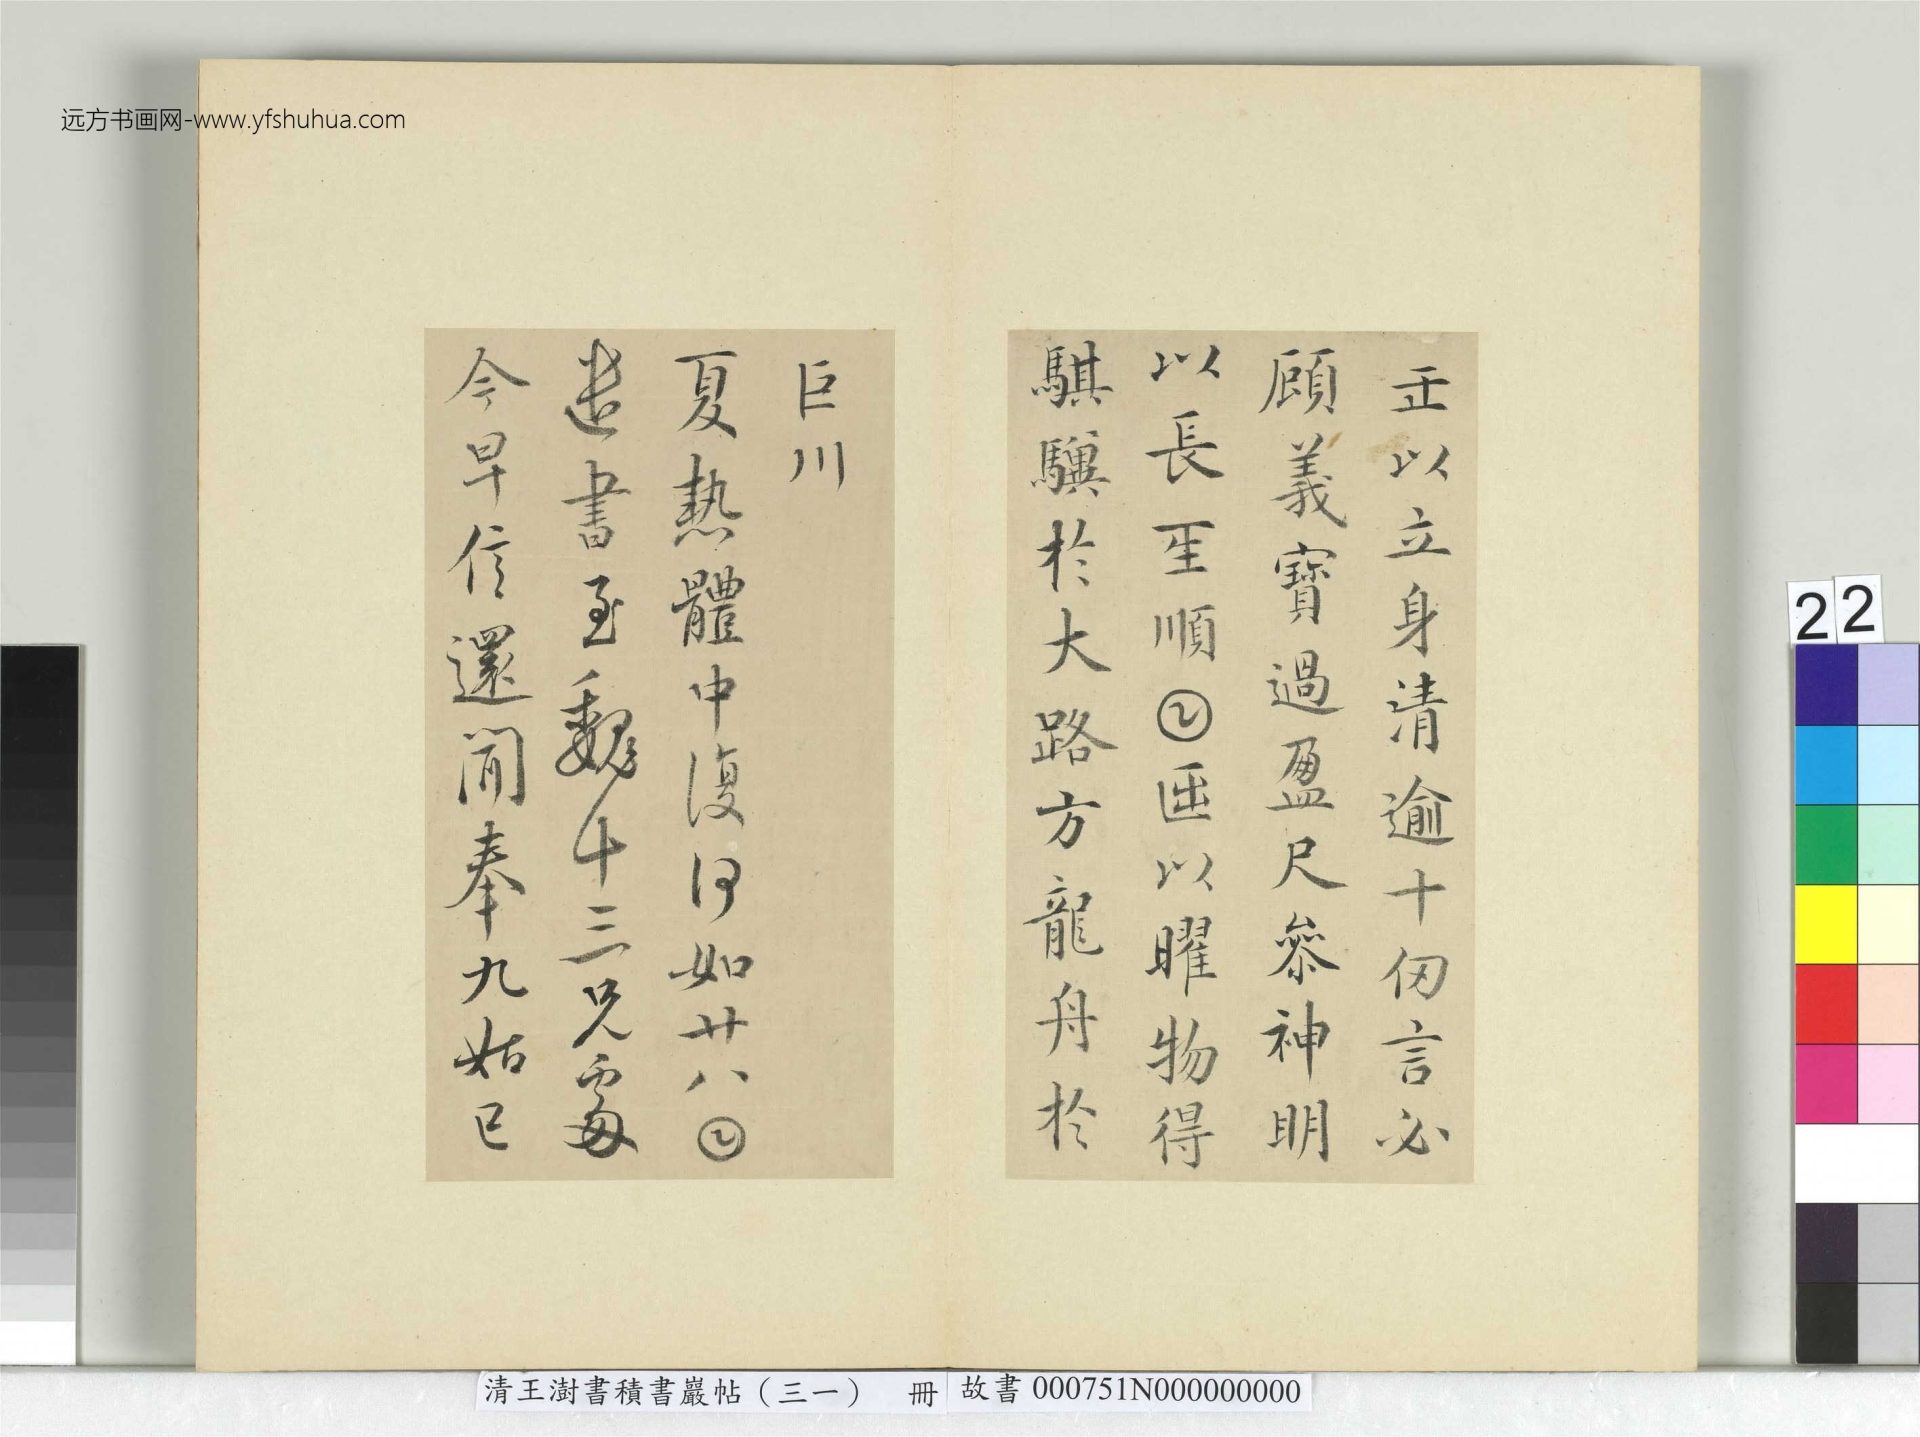 远方书画网-www.yfshuhua.com
正以立身清逾十仞言必
顧義寶過盈尺參神明
以長𤯔順𡆠𠥱以曜物得
騏驥於大路方龍舟於
巨川
夏熱體中復何如廿八𡆠
遣書至魏十三兄處
今早信還聞奉九姑已
22
清王澍書積書巖帖（三一） 冊 故書 000751N000000000